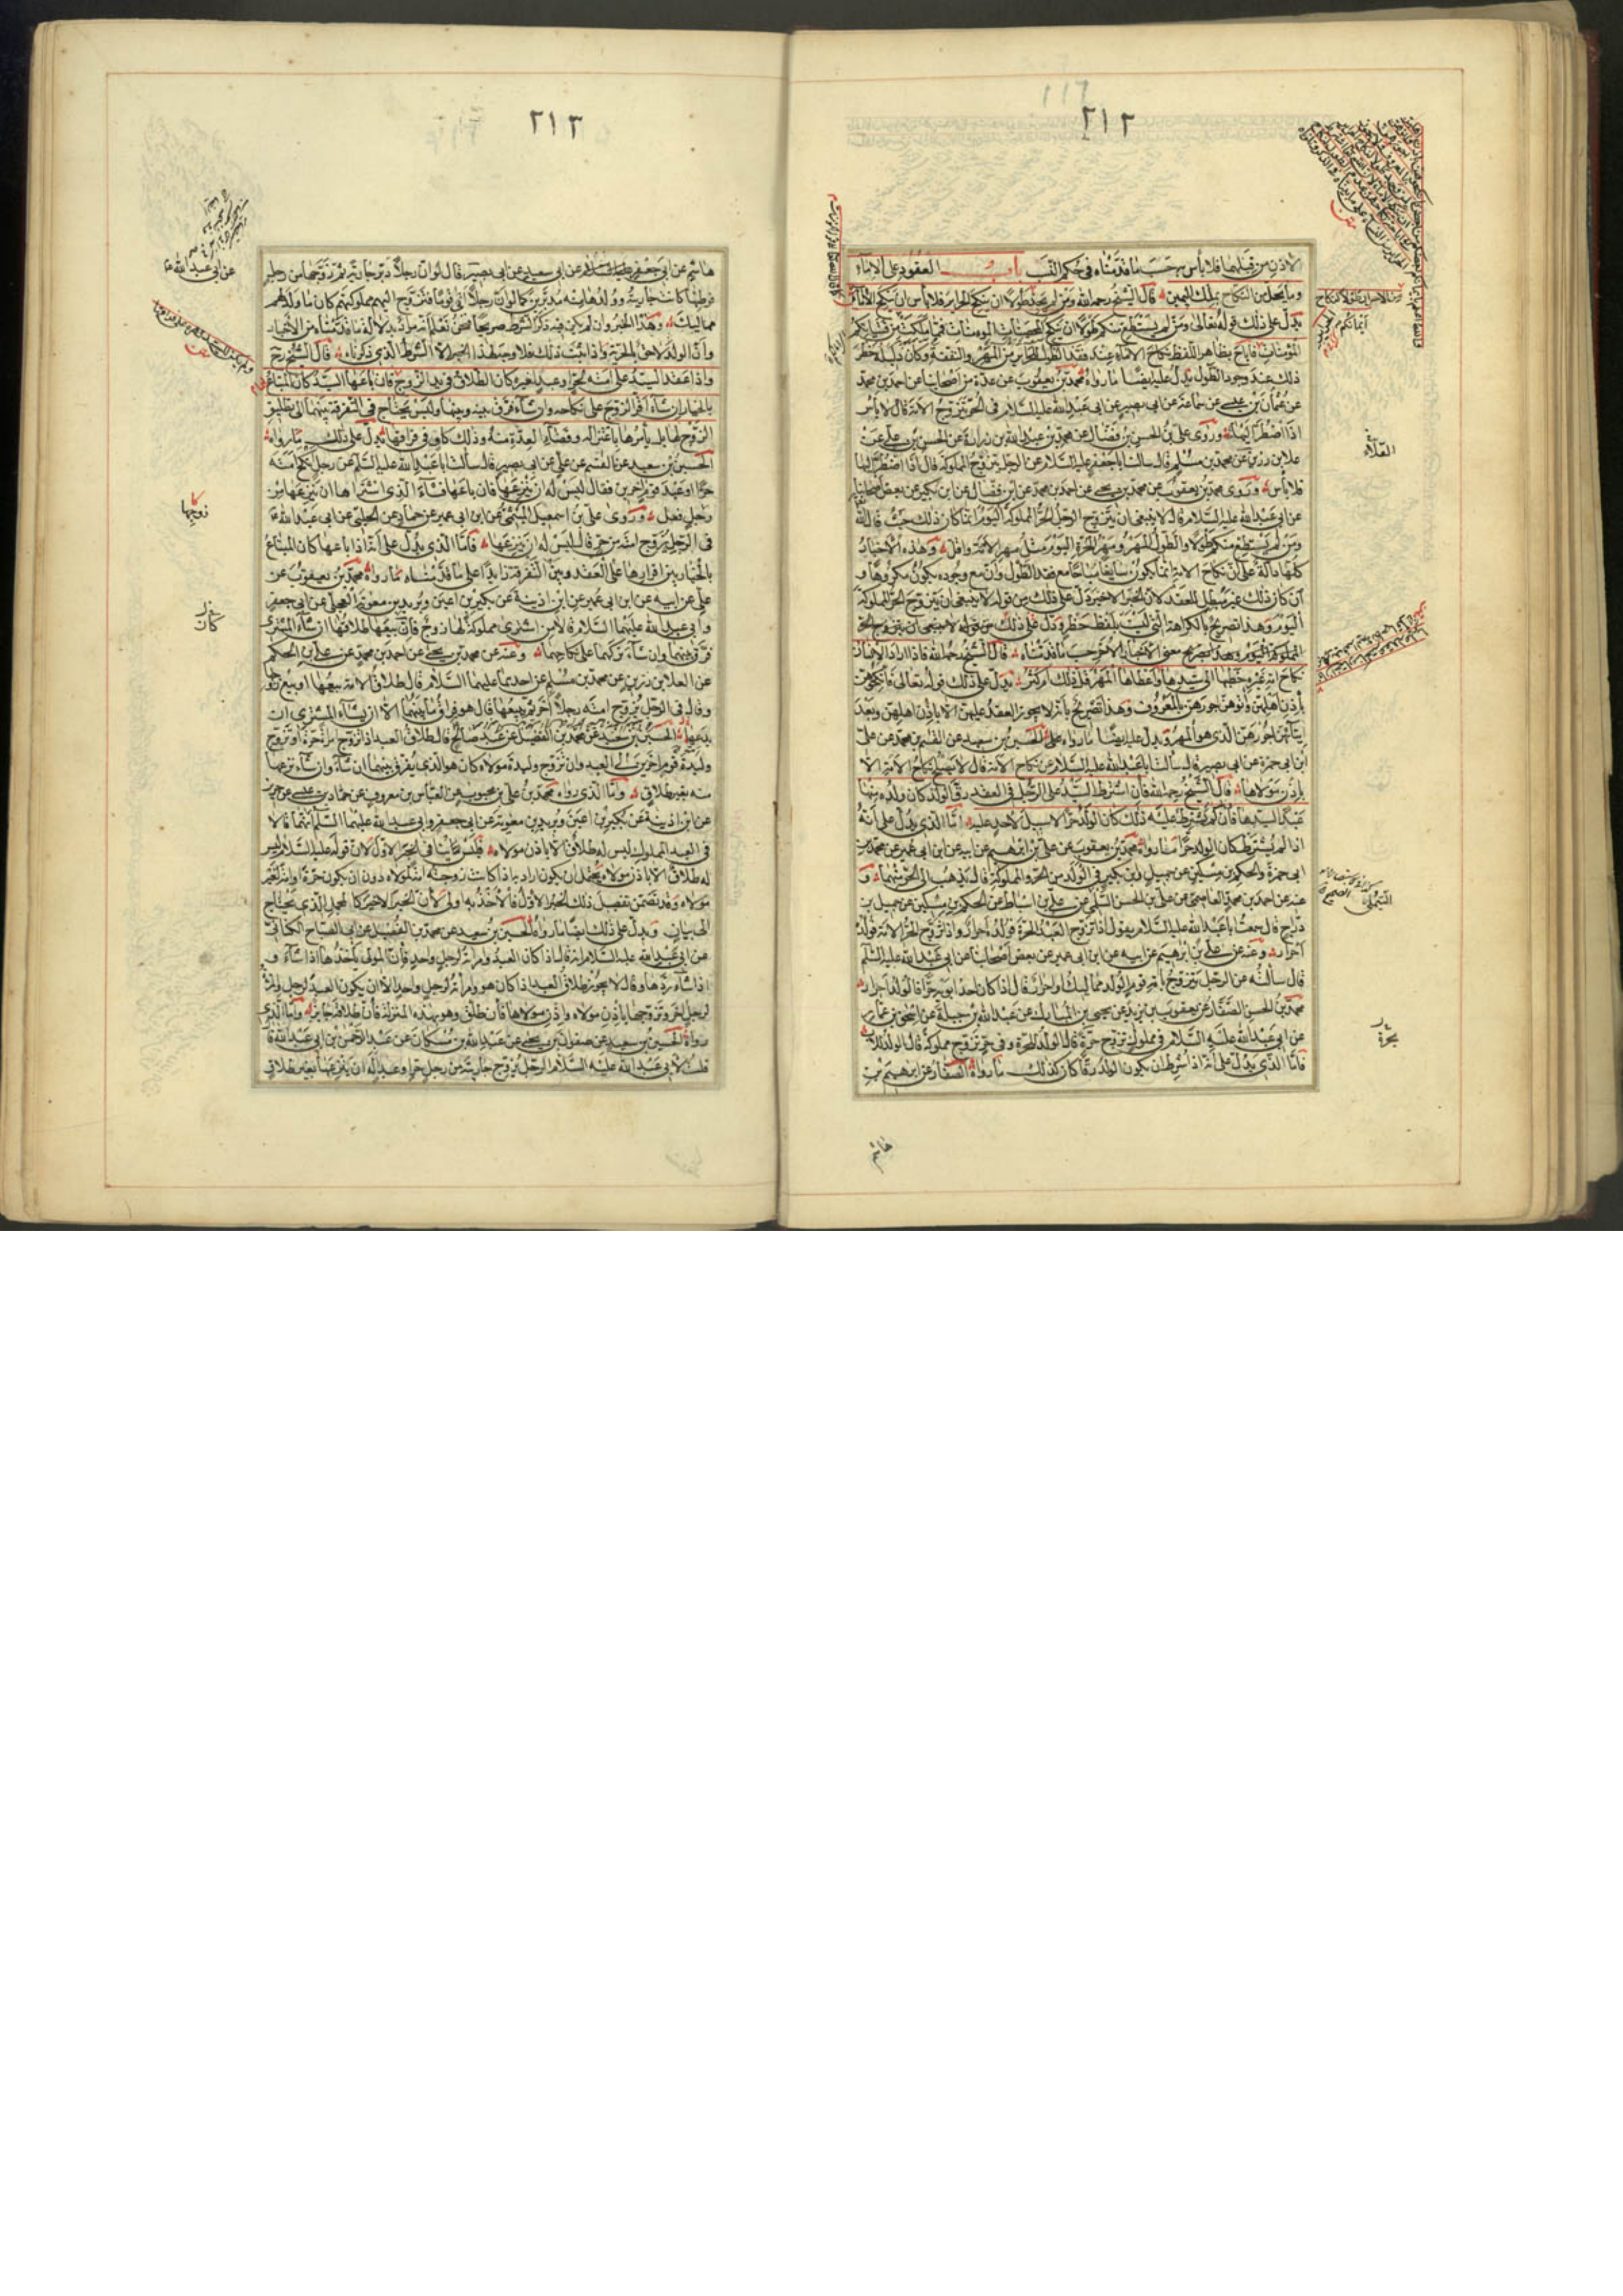 ٢١٢
الاذن من قبلها فلا بأس حسب ما قدمناه في حكم العقد باب العقود على الاماء
وما يحل من النكاح بملك اليمين قال الشيخ رحمه الله ومن لم يجد طولا ان ينكح الحراير فلا بأس ان ينكح الاماء
يدل على ذلك قوله تعالى ومن لم يستطع منكم طولا ان ينكح المحصنات المومنات فمما ملكت من فتياتكم
المؤمنات فاباح بظاهر اللفظ نكاح الاماء عند فقد الطول للحراير من المهر والنفقة وكان دليله حظر
ذلك عند وجود الطول يدل عليه ايضا ما رواه محمد بن يعقوب عن عدة من اصحابنا عن احمد بن محمد
عن عثمان بن عيسى عن سماعة عن ابي بصير عن ابي عبد الله عليه السلام في الحر يتزوج الامة قال لا بأس
اذا اضطر اليها وروى علي بن الحسن بن فضال عن محمد بن عبد الله بن زرارة عن الحسن بن علي عن
علا بن رزين عن محمد بن مسلم قال سالت ابا جعفر عليه السلام عن الرجل يتزوج المملوكة قال اذا اضطر اليها
فلا بأس وروى محمد بن يعقوب عن محمد بن يحيى عن احمد بن محمد عن ابن فضال عن ابن بكير عن بعض اصحابنا
عن ابي عبد الله عليه السلام قال لا ينبغي ان يتزوج الرجل الحر المملوكة اليوم انما كان ذلك حيث قال الله
ومن لم يستطع منكم طولا والطول المهر ومهر الحرة اليوم مثل مهر الامة واقل وهذه الاخبار
كلها دالة على ان نكاح الامة انما يكون سايغا مباحا مع فقد الطول وان مع وجوده يكون مكروها و
ان كان ذلك غير مبطل للعقد لان الخبر الاخير دل على ذلك من قوله لا ينبغي ان يتزوج الحر المملوكة
اليوم وهذا تصريح بالكراهة التي ليست بلفظ حظر ودل على ذلك من قوله لا ينبغي ان يتزوج الحر
المملوكة اليوم وهذا تصريح حسب ما قدمناه قال الشيخ رحمه الله فاذا اراد الانسان
نكاح امة غيره خطبها الى سيدها واعطاها المهر قل ذلك ام كثر يدل على ذلك قوله تعالى فانكحوهن
باذن اهلهن واتوهن اجورهن بالمعروف وهذا تصريح بانه لا يجوز العقد عليهن الا باذن اهلهن وبعد
ايتائهن اجورهن الذي هو المهر ويدل عليه ايضا ما رواه الحسين بن سعيد عن القسم بن محمد عن علي
ابن ابي حمزة عن ابي بصير قال سالت ابا عبد الله عليه السلام عن نكاح الامة قال لا يصلح نكاح الامة الا
باذن مولاها قال الشيخ رحمه الله فان اشترط السيد على الرجل في العقد رق الولد كان ولده منها
عبدا لسيدها فان لم يشترط عليه ذلك كان الولد حرا لا سبيل لاحد عليه اما الذي يدل على انه
اذا لم يشترط كان الولد حرا ما رواه محمد بن يعقوب عن علي بن ابرهيم عن ابيه عن ابن ابي عمير عن محمد بن
ابي حمزة والحكم بن مسكين عن جميل وابن بكير في الولد من الحر والمملوكة قال يذهب الى الحر منهما و
عنه عن احمد بن محمد العاصمي عن علي بن الحسن السلمي عن علي بن اسباط عن الحكم بن مسكين عن جميل بن
دراج قال سمعت ابا عبد الله عليه السلام يقول اذا تزوج العبد الحرة فولده احرار واذا تزوج الحر الامة فولده
احرار وعنه عن علي بن ابرهيم عن ابيه عن ابن ابي عمير عن بعض اصحابنا عن ابي عبد الله عليه السلام
قال سألته عن الرجل يتزوج بأمة قوم الولد مماليك او احرار قال اذا كان احد ابويه حرا فالولد احرار
محمد بن الحسن الصفار عن يعقوب بن يزيد عن يحيى بن المبارك عن عبد الله بن جبلة عن اسحق بن عمار
عن ابي عبد الله عليه السلام في مملوك تزوج حرة قال الولد للحرة وفي حر تزوج مملوكة قال الولد للاب
فاما الذي يدل على انه اذا شرط ان يكون الولد رقا كان كذلك ما رواه الصفار عن ابرهيم بن
هاشم
ايمانكم
العلاء
التيملي
بحرة
٢١٣
هاشم عن ابي جعفر عن ابي سعيد عن ابي بصير قال لو ان رجلا دبر جارية ثم زوجها من رجل
فوطئها كانت جاريته وولدها منه مدبرين كما لو ان رجلا اتى قوما فتزوج اليهم مملوكتهم كان ما ولد لهم
مماليك وهذا الخبر وان لم يكن فيه ذكر الشرط صريحا فنحن نعلم انه مراد بدلالة ما قدمناه من الاخبار
وان الولد لاحق بالحرية واذا ثبت ذلك فلا وجه لهذا الخبر الا الشرط الذي ذكرناه قال الشيخ رحمه
واذا عقد السيد على امته لحر او عبد لغيره كان الطلاق في يد الزوج فان باعها السيد كان المبتاع
بالخيار ان شاء اقر الزوج على نكاحه وان شاء فرق بينه وبينها وليس يحتاج في التفرقة بينهما الى تطليق
الزوج لها بل يأمرها باعتزاله وقضاء العدة منه وذلك كاف في فراقها يدل على ذلك ما رواه
الحسين بن سعيد عن القسم عن علي عن ابي بصير قال سالت ابا عبد الله عليه السلم عن رجل انكح امته
حرا او عبد قوم اخرين فقال ليس له ان ينزعها فان باعها فشاء الذي اشتراها ان ينزعها من
رجل فعل وروى علي بن اسمعيل الميثمي عن ابن ابي عمير عن حماد عن الحلبي عن ابي عبد الله ع
في الرجل يزوج امته من حر قال ليس له ان ينزعها فاما الذي يدل على انه اذا باعها كان المبتاع
بالخيار بين اقرارها على العقد وبين التفرقة زايدا على ما قدمناه ما رواه محمد بن يعقوب عن
علي عن ابيه عن ابن ابي عمير عن ابن اذينة عن بكير بن اعين وبريد بن معوية العجلي عن ابي جعفر
وابي عبد الله عليهما السلام قالا من اشترى مملوكة لها زوج فان بيعها طلاقها ان شاء المشتري
فرق بينهما وان شاء تركهما على نكاحهما وعنه عن محمد بن يحيى عن احمد بن محمد عن علي بن الحكم
عن العلا بن رزين عن محمد بن مسلم عن احدهما عليهما السلام قال طلاق الامة بيعها او بيع زوجها
وقال في الرجل يزوج امته رجلا اخر ثم يبيعها قال هو فراق ما بينهما الا ان يشاء المشتري ان
يدعهما الحسين بن سعيد عن محمد بن الفضيل عن عبد صالح قال طلاق العبد اذا تزوج امرأة حرة او تزوج
وليدة قوم اخرين الى العبد وان تزوج وليدة مولاه كان هو الذي يفرق بينهما ان شاء وان شاء نزعها
منه بغير طلاق واما الذي رواه محمد بن علي بن محبوب عن العباس بن معروف عن حماد بن عيسى عن حريز
عن ابن اذينة عن بكير بن اعين وبريد بن معوية عن ابي جعفر وابي عبد الله عليهما السلم انهما قالا
في العبد المملوك ليس له طلاق الا باذن مولاه فليس ينافي الخبر الاول لان قوله عليه السلام ليس
له طلاق الا باذن مولاه يحتمل ان يكون اراد به اذا كانت زوجته امة لمولاه دون ان يكون حرة او امة لغير
مولاه وقد تضمن تفصيل ذلك الخبر الاول فالاخذ به اولى لان الخبر الاخير كالمجمل الذي يحتاج
الى بيان ويدل على ذلك ايضا ما رواه الحسين بن سعيد عن محمد بن الفضيل عن ابي الصباح الكناني
عن ابي عبد الله عليه السلام انه قال اذا كان العبد وامرأته لرجل واحد فان المولى يأخذها اذا شاء و
اذا شاء ردها وقال لا يجوز طلاق العبد اذا كان هو وامرأته لرجل واحد الا ان يكون العبد لرجل وامرأته
لرجل اخر وتزوجها باذن مولاه واذن مولاها فان طلق وهو بهذه المنزلة فان طلاقه جايز واما الذي
رواه الحسين بن سعيد عن صفوان بن يحيى عن عبد الله بن مسكان عن عبد الرحمن بن ابي عبد الله قا
قلت لابي عبد الله عليه السلام الرجل يزوج جاريته من رجل حر او عبد اله ان ينزعها بغير طلاق
عن ابي عبد الله ع
زوجها
كان